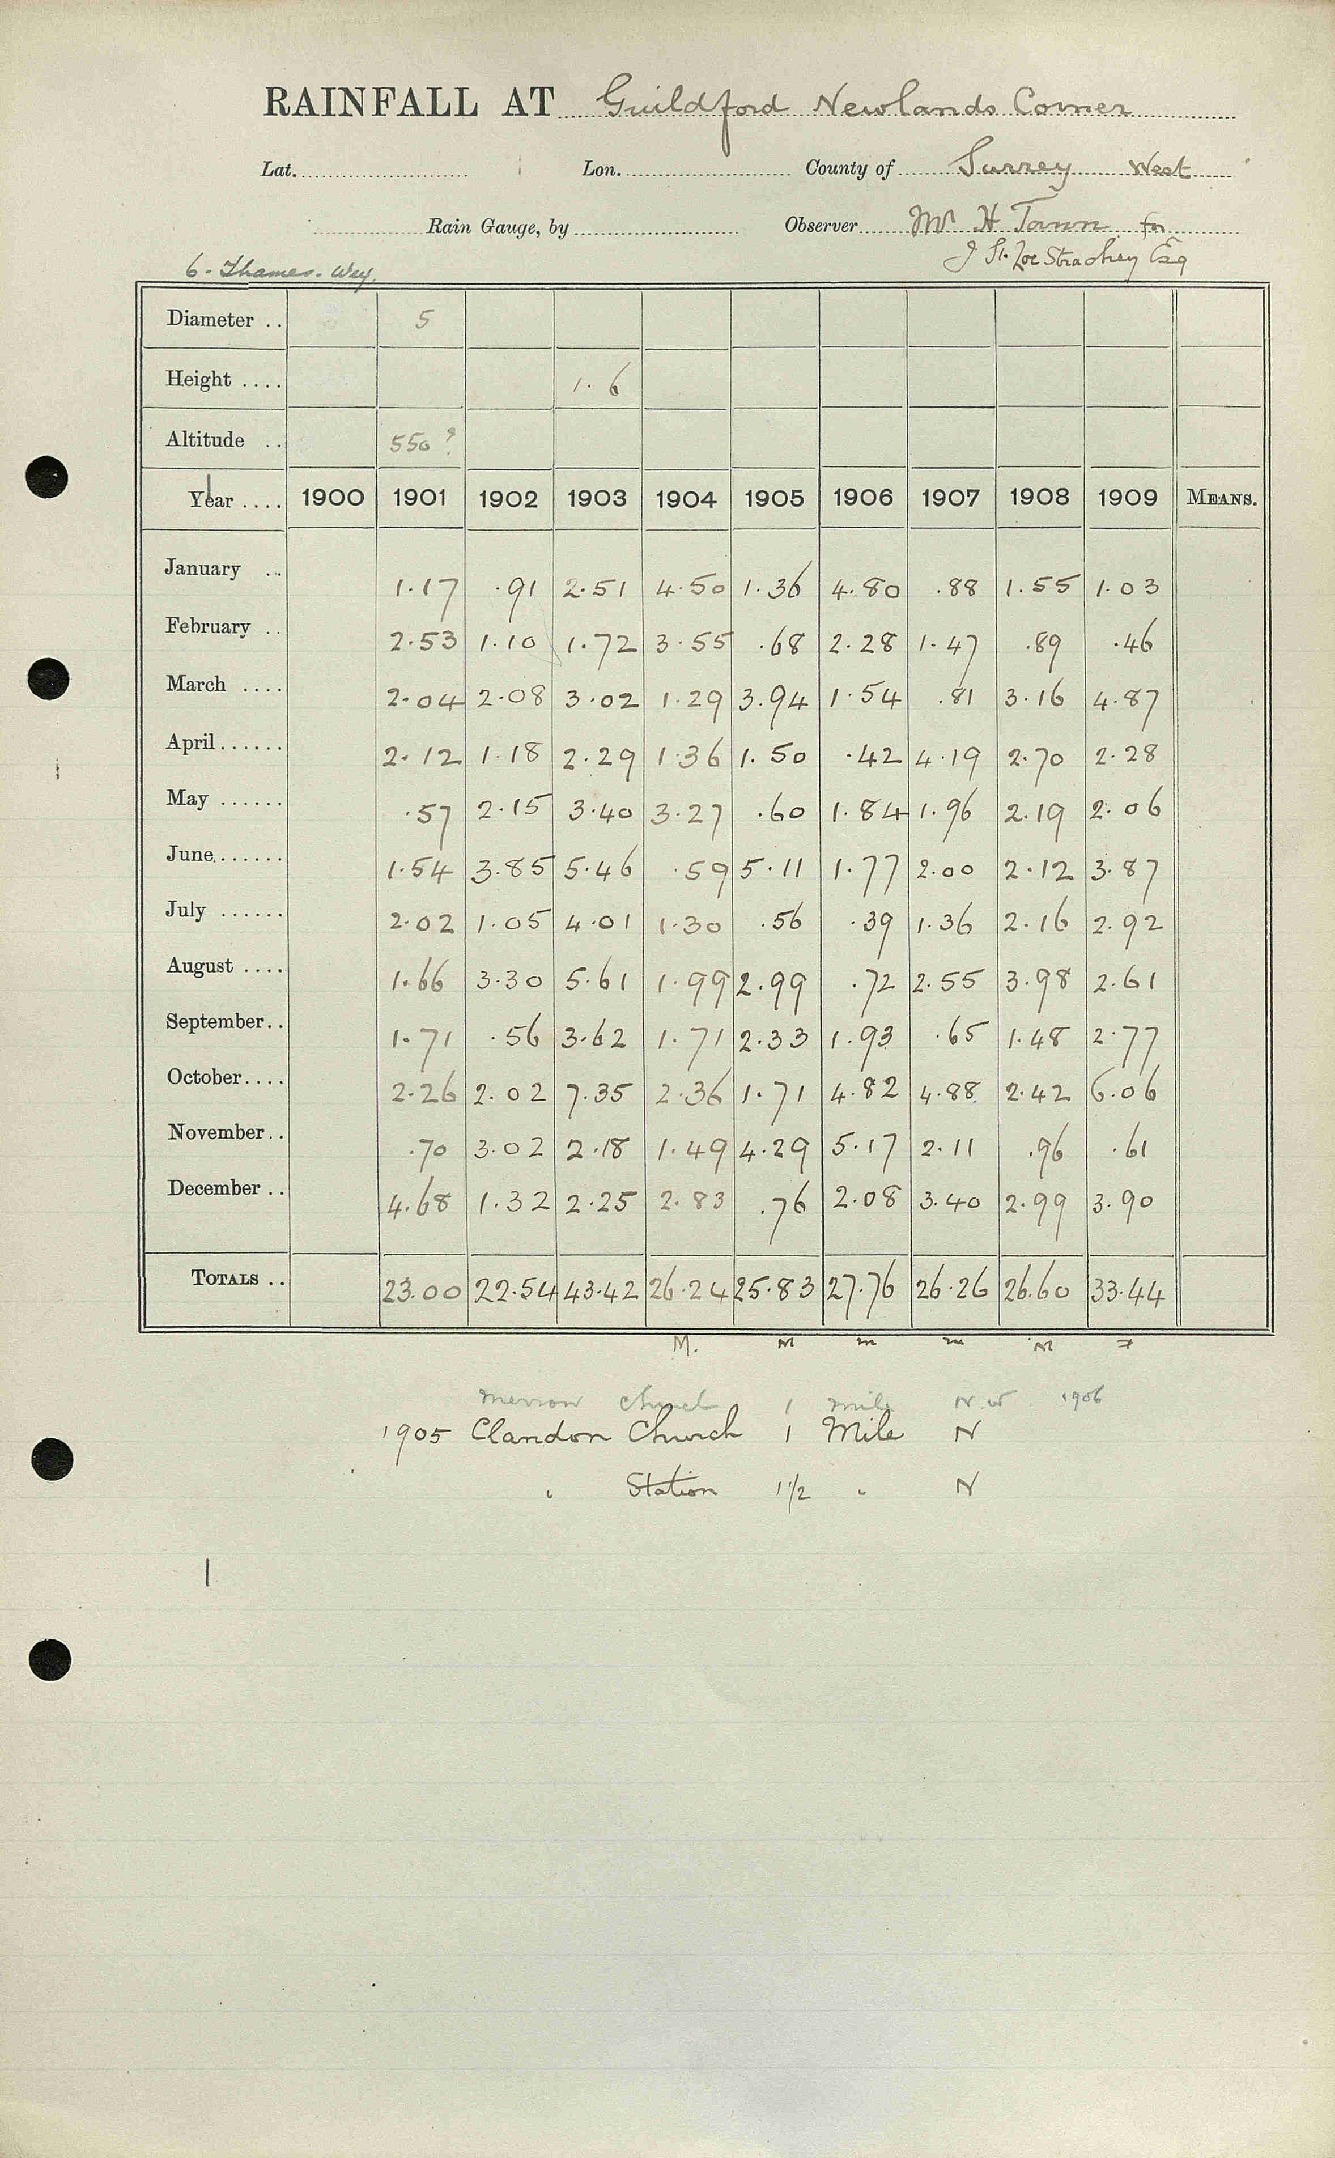 RAINFALL AT Guildford Newlands Corner
Lat. Lon. County of Surrey West
Rain Gauge, by Observer Mr H Tann for
J St. Loe Strachey Esq
6 - Thames - Wey.
Diameter .. 5
Height .... 1. 6
Altitude .. 550 ?
Year .... 1900 1901 1902 1903 1904 1905 1906 1907 1908 1909 MEANS.
January .. 1.17 .91 2.51 4.50 1.36 4.80 .88 1.55 1.03
February .. 2.53 1.10 1.72 3.55 .68 2.28 1.47 .89 .46
March .... 2.04 2.08 3.02 1.29 3.94 1.54 .81 3.16 4.87
April...... 2.12 1.18 2.29 1.36 1.50 .42 4.19 2.70 2.28
May ...... .57 2.15 3.40 3.27 .60 1.84 1.96 2.19 2.06
June...... 1.54 3.85 5.46 .59 5.11 1.77 2.00 2.12 3.87
July ...... 2.02 1.05 4.01 1.30 .56 .39 1.36 2.16 2.92
August .... 1.66 3.30 5.61 1.99 2.99 .72 2.55 3.98 2.61
September.. 1.71 .56 3.62 1.71 2.33 1.93 .65 1.48 2.77
October.... 2.26 2.02 7.35 2.36 1.71 4.82 4.88 2.42 6.06
November.. .70 3.02 2.18 1.49 4.29 5.17 2.11 .96 .61
December .. 4.68 1.32 2.25 2.83 .76 2.08 3.40 2.99 3.90
TOTALS .. 23.00 22.54 43.42 26.24 25.83 27.76 26.26 26.60 33.44
M. M m m M
Merrow Church 1 mile N.W 1906
1905 Clandon Church 1 Mile N
" Station 1 1/2 " N